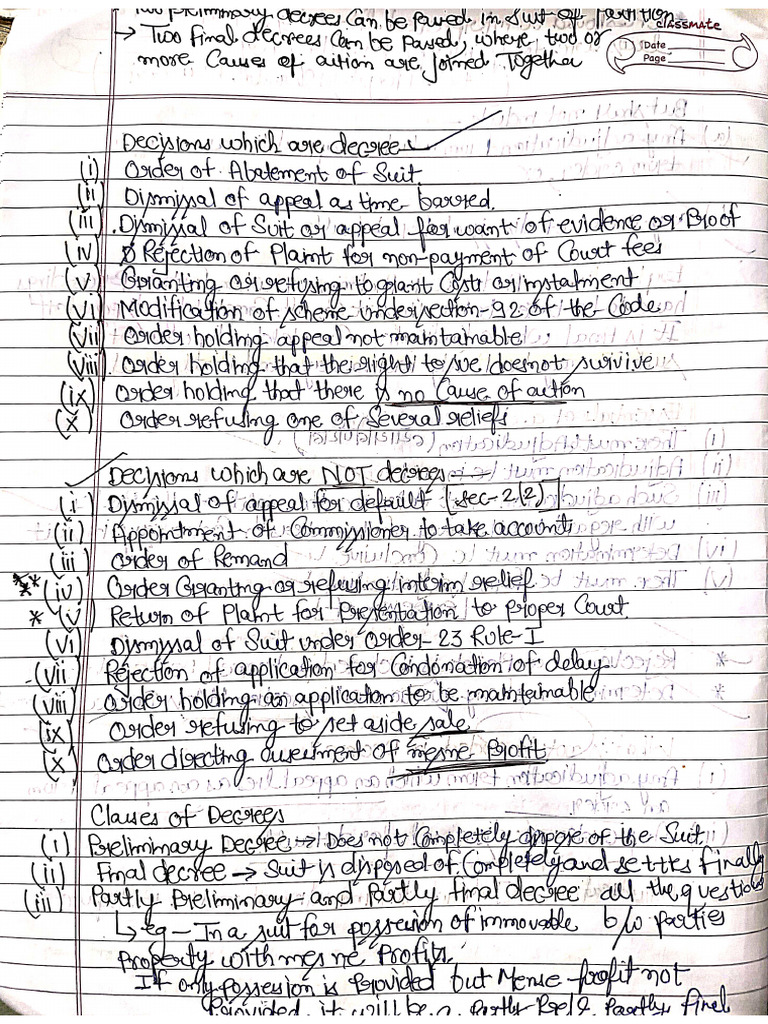 Two preliminary decrees can be passed in suit of partition
→ Two final decrees can be passed, where two or
more causes of action are joined together
classmate
Date
Page
Decisions which are decree
(i) Order of Abatement of Suit
(ii) Dismissal of appeal as time barred.
(iii) Dismissal of Suit or appeal for want of evidence or Proof
(iv) Rejection of Plaint for non-payment of Court fees
(v) Granting or refusing to grant Costs or instalment
(vi) Modification of scheme under section-92 of the Code
(vii) Order holding appeal not maintainable
(viii) Order holding that the right to sue does not survive
(ix) Order holding that there is no Cause of action
(x) Order refusing one of Several reliefs
Decisions which are NOT decrees
(i) Dismissal of appeal for default [sec-2(2)]
(ii) Appointment of Commissioner to take accounts
(iii) Order of Remand
** (iv) Order Granting or refusing interim relief
* (v) Return of Plaint for Presentation to proper Court
(vi) Dismissal of Suit under Order-23 Rule-I
(vii) Rejection of application for Condonation of delay
(viii) Order holding an application to be maintainable
(ix) Order refusing to set aside sale
(x) Order directing assessment of mesne Profit
Classes of Decrees
(i) Preliminary Decree → Does not Completely dispose of the Suit.
(ii) Final decree → Suit is disposed of Completely and settles finally
(iii) Partly Preliminary and Partly final decree all the questions
↳ eg - In a suit for possession of immovable b/w parties
Property with mesne Profits.
If only possession is Provided but Mense profit not
Provided, it will be a Partly Prel & Partly final